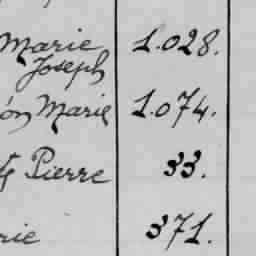 Marie 1.028.
Joseph
ón Marie 1.074.
Pierre 33.
rie 371.